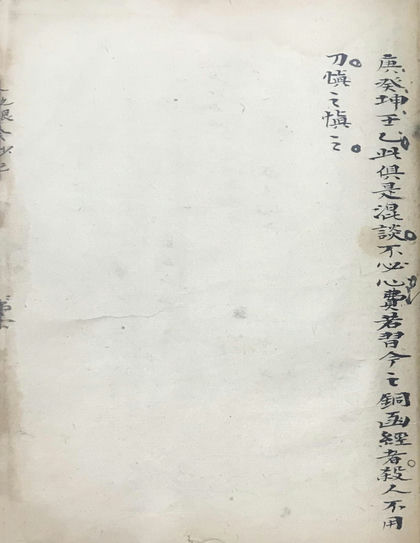 庚癸坤壬乙此俱是混談不必心費若習今之銅函經者殺人不用
刀慎之慎之